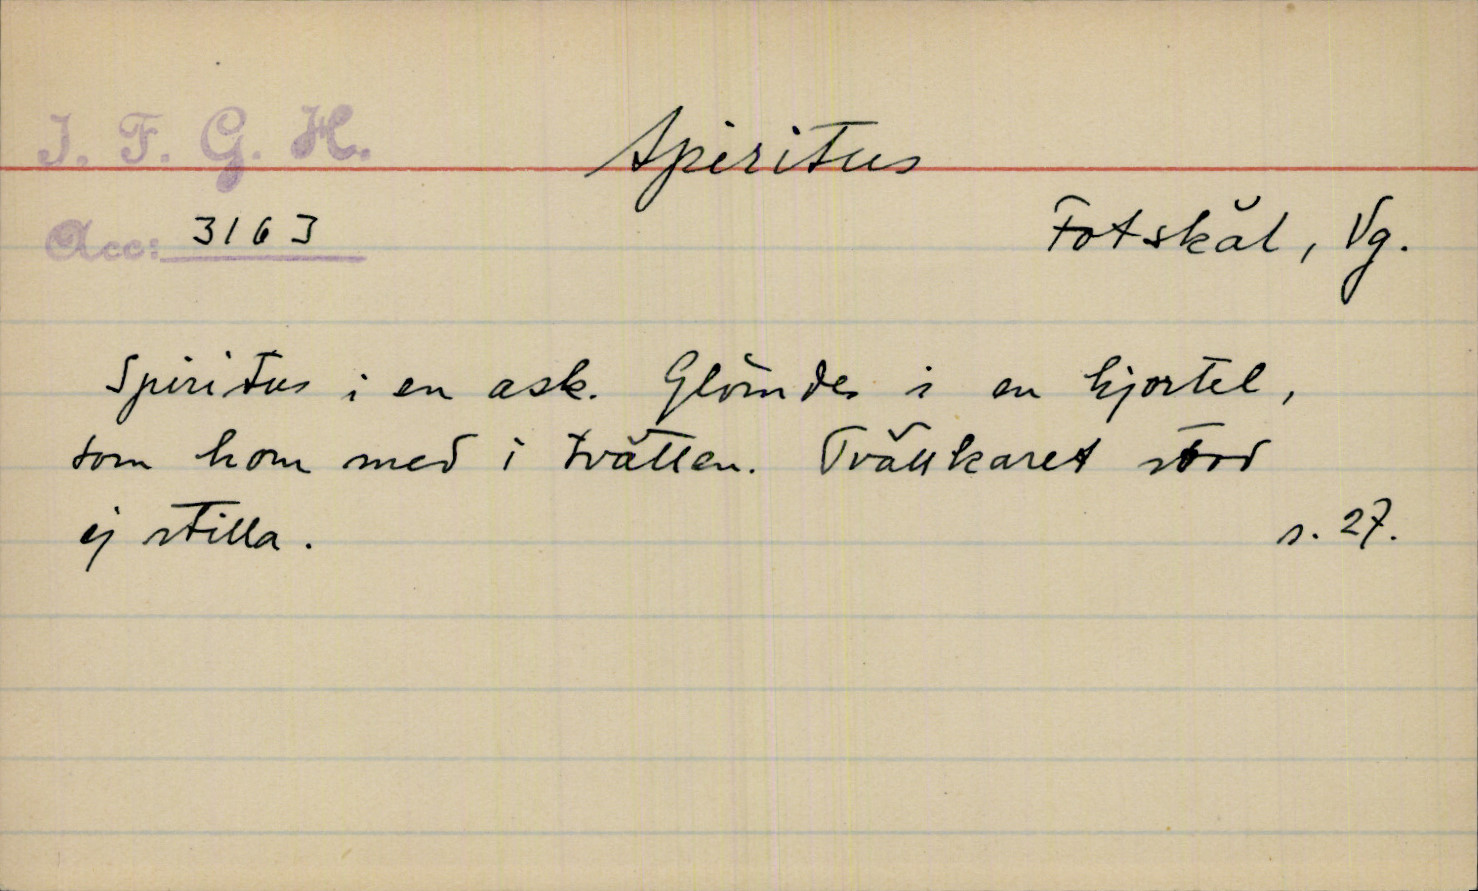 I. F. G. H.
Spiritus
Acc: 3163
Fotskäl, Vg.
Spiritus i en ask. Glömdes i en kjortel,
som kom med i tvätten. Tvättkaret stod
ej stilla.
s. 27.